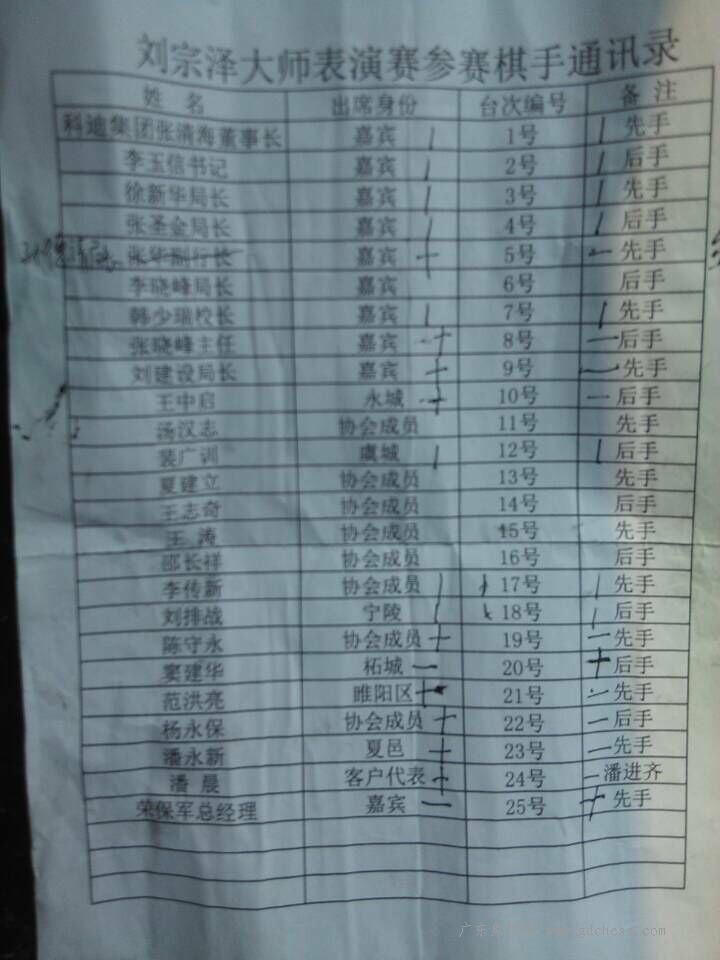 刘宗泽大师表演赛参赛棋手通讯录
姓 名 出席身份 台次编号 备 注
科迪集团张清海董事长 嘉宾 1号 先手
李玉信书记 嘉宾 2号 后手
徐新华局长 嘉宾 3号 先手
张圣金局长 嘉宾 4号 后手
张华副行长 嘉宾 5号 先手
李晓峰局长 嘉宾 6号 后手
韩少瑞校长 嘉宾 7号 先手
张晓峰主任 嘉宾 8号 后手
刘建设局长 嘉宾 9号 先手
王中启 永城 10号 后手
汤汉志 协会成员 11号 先手
裴广训 虞城 12号 后手
夏建立 协会成员 13号 先手
王志奇 协会成员 14号 后手
王 涛 协会成员 15号 先手
邵长祥 协会成员 16号 后手
李传新 协会成员 17号 先手
刘排战 宁陵 18号 后手
陈守永 协会成员 19号 先手
窦建华 柘城 20号 后手
范洪亮 睢阳区 21号 先手
杨永保 协会成员 22号 后手
潘永新 夏邑 23号 先手
潘 晨 客户代表 24号 潘进齐
荣保军总经理 嘉宾 25号 先手